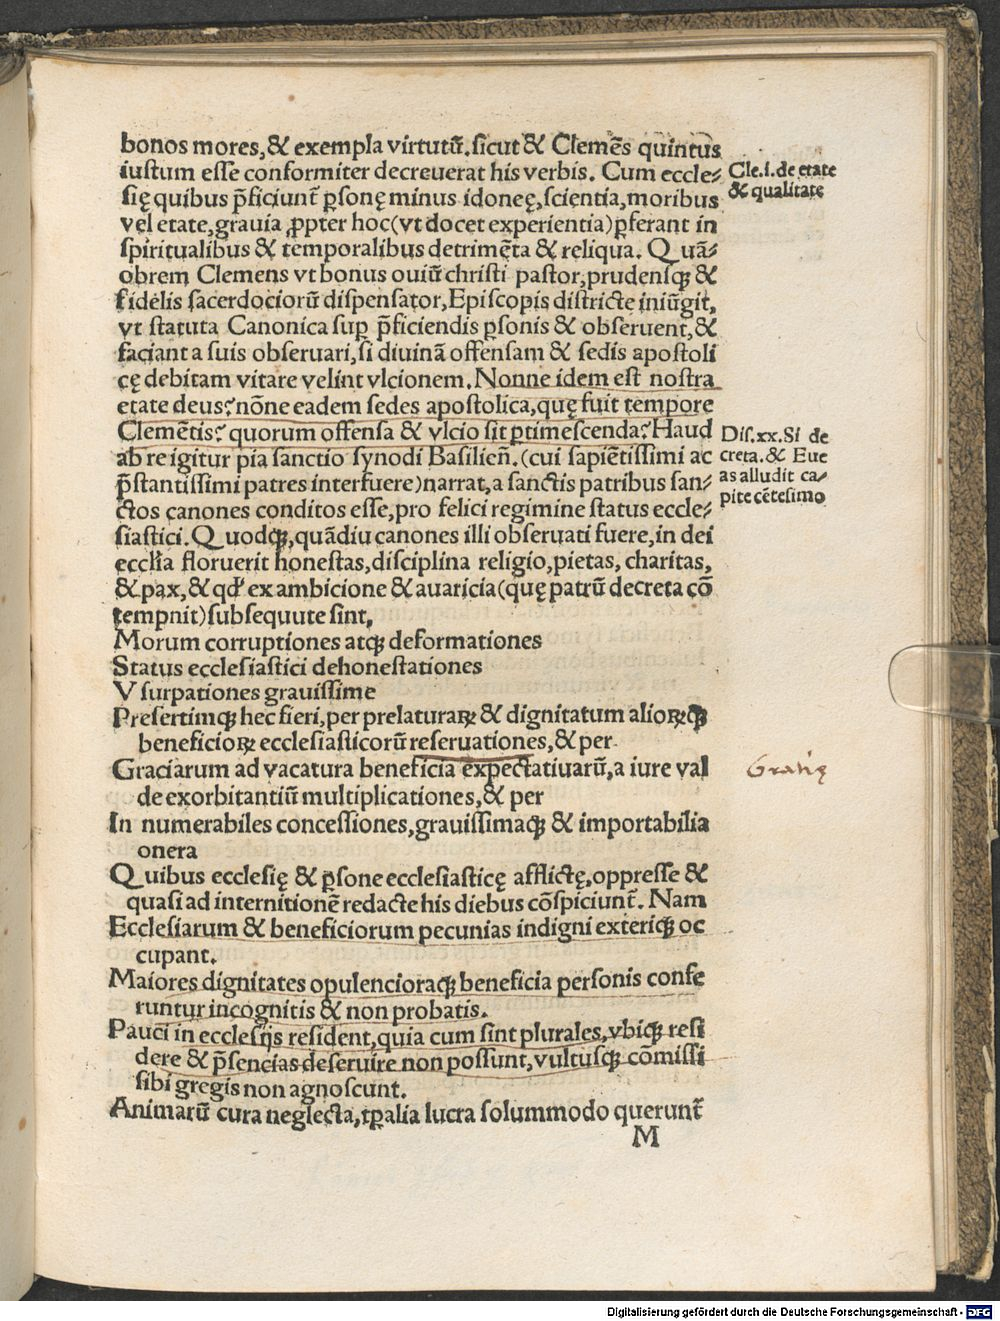 bonos mores, & exempla virtutū. sicut & Clemēs quintus
iustum esse conformiter decreuerat his verbis. Cum eccle-
Cle. i. de etate
& qualitate
się quibus p̄ficiunt̄ ꝑsonę minus idoneę, scientia, moribus
vel etate, grauia ꝓpter hoc (vt docet experientia) ꝑferant in
spiritualibus & temporalibus detrimēta & reliqua. Quā-
obrem Clemens vt bonus ouiū christi pastor, prudensqꝫ &
fidelis sacerdociorū dispensator, Episcopis districte iniūgit,
vt statuta Canonica suꝑ p̄ficiendis ꝑsonis & obseruent, &
faciant a suis obseruari, si diuinā offensam & sedis apostoli
cę debitam vitare velint vlcionem. Nonne idem est nostra
etate deus? nōne eadem sedes apostolica, quę fuit tempore
Clemētis? quorum offensa & vlcio sit ꝑtimescenda? Haud
ab re igitur pia sanctio synodi Basilień. (cui sapiētissimi ac
p̄stantissimi patres interfuere) narrat, a sanctis patribus san-
ctos canones conditos esse, pro felici regimine status eccle-
Dis. xx. Si de
creta. & Eue
as alludit ca-
pite cētesimo
siastici. Quodqꝫ, quādiu canones illi obseruati fuere, in dei
ecclīa floruerit honestas, disciplina religio, pietas, charitas,
& pax, & qď ex ambicione & auaricia (quę patrū decreta cō
tempnit) subsequute sint,
Morum corruptiones atqꝫ deformationes
Status ecclesiastici dehonestationes
Vsurpationes grauissime
Presertimqꝫ hec fieri, per prelaturaꝝ & dignitatum alioꝝqꝫ
beneficioꝝ ecclesiasticorū reseruationes, & per
Graciarum ad vacatura beneficia expectatiuarū, a iure val
Gratię
de exorbitantiū multiplicationes, & per
In numerabiles concessiones, grauissimaqꝫ & importabilia
onera
Quibus ecclesię & ꝑsone ecclesiasticę afflictę, oppresse &
quasi ad internitionē redacte his diebus cōspiciunt̄. Nam
Ecclesiarum & beneficiorum pecunias indigni exteriqꝫ oc
cupant.
Maiores dignitates opulencioraqꝫ beneficia personis confe
runtur incognitis & non probatis.
Pauci in ecclesijs resident, quia cum sint plurales, vbiqꝫ resi
dere & p̄sencias deseruire non possunt, vultusqꝫ cōmissi
sibi gregis non agnoscunt.
Animarū cura neglecta, tꝑalia lucra solummodo querunt̄
M
Digitalisierung gefördert durch die Deutsche Forschungsgemeinschaft - DFG